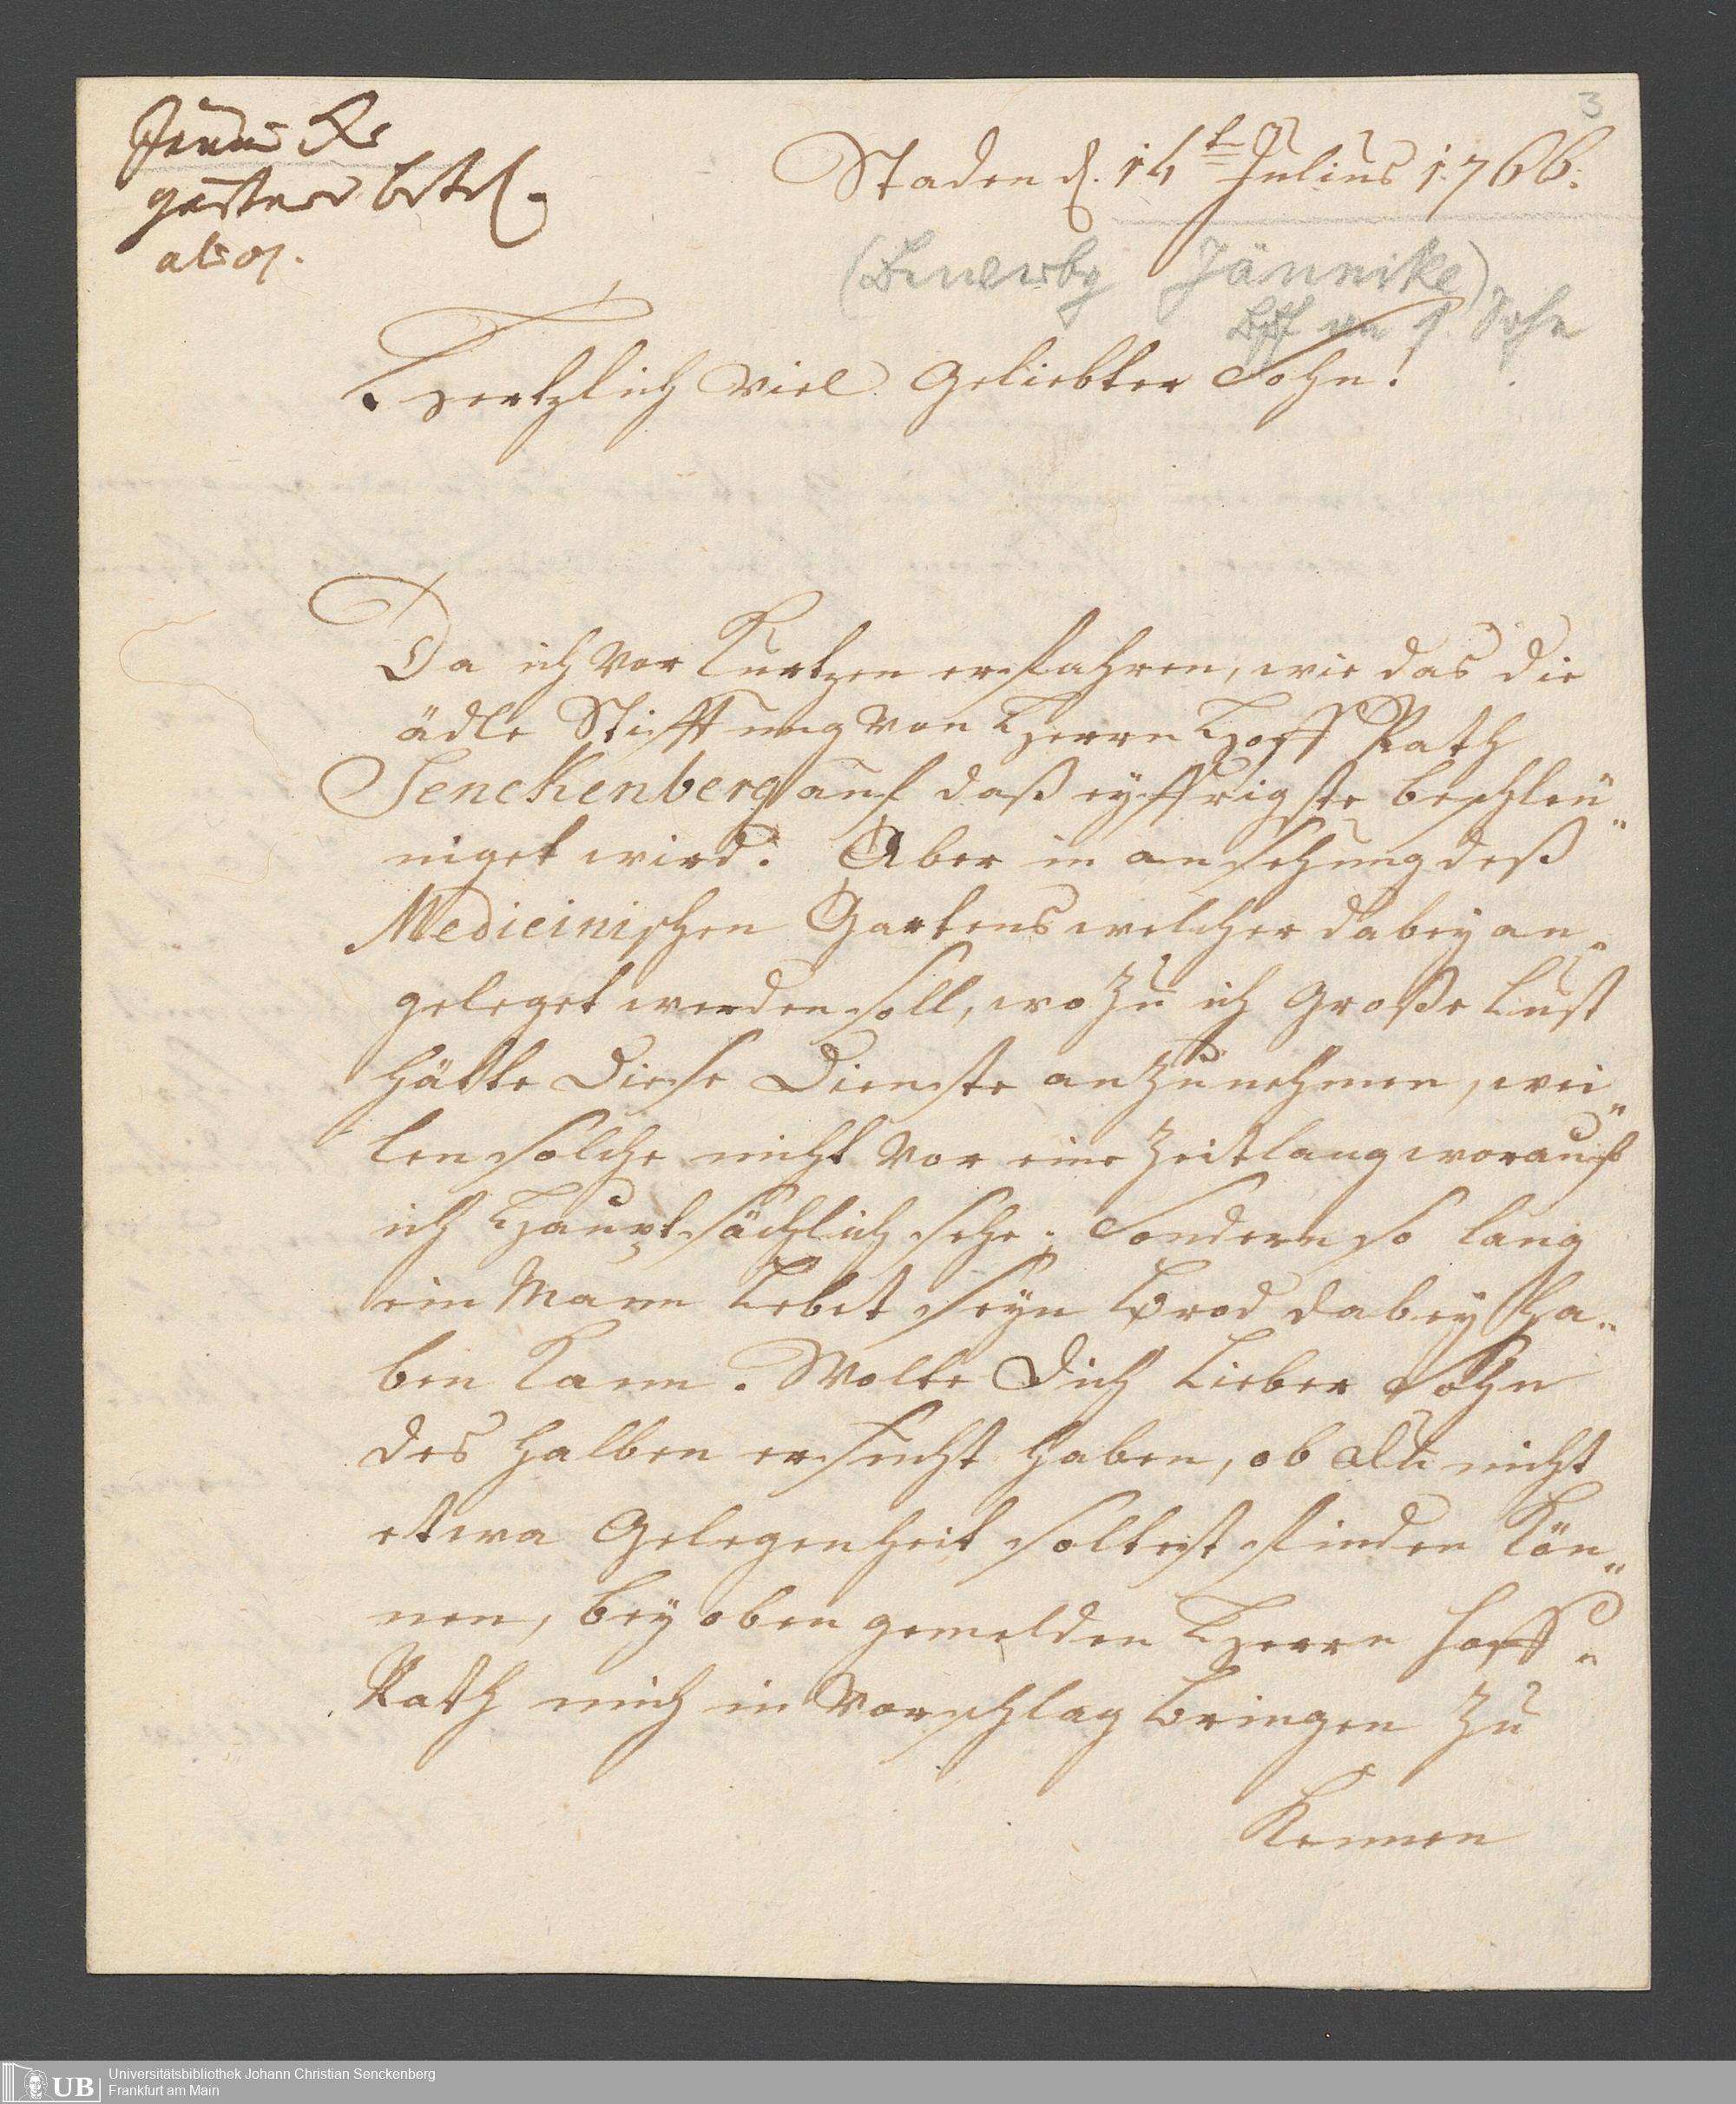 3
Staden d. 14t Julius 1766.
(Bewerbg Jännike)
Bff an s. Sohn
Hertzlich viel Geliebter Sohn!
Da ich vor Kurtzen erfahren, wie das die
ädle Stifftung von Herrn Hoff Rath
Senckenberg auf daß eyffrigste beschleu„
niget wird. Aber in ansehung deß
Medicinischen Gartens welcher dabey an„
geleget werden soll, wo zu ich Große Lust
hätte Diese Dienste anzunehmen, wei„
len solche nicht vor eine Zeitlang worauf
ich Hauptsächlich sehe; Sondern so lang
ein Mann Lebet seyn Brod dabey Ha„
ben Kann. Wolte Dich Lieber Sohn
des halben ersucht haben, ob Du nicht
etwa Gelegenheit soltest finden Kön„
nen, bey oben gemelden Herrn Hoff„
Rath mich in Vorschlag bringen zu
Kennen
UB
Universitätsbibliothek Johann Christian Senckenberg
Frankfurt am Main